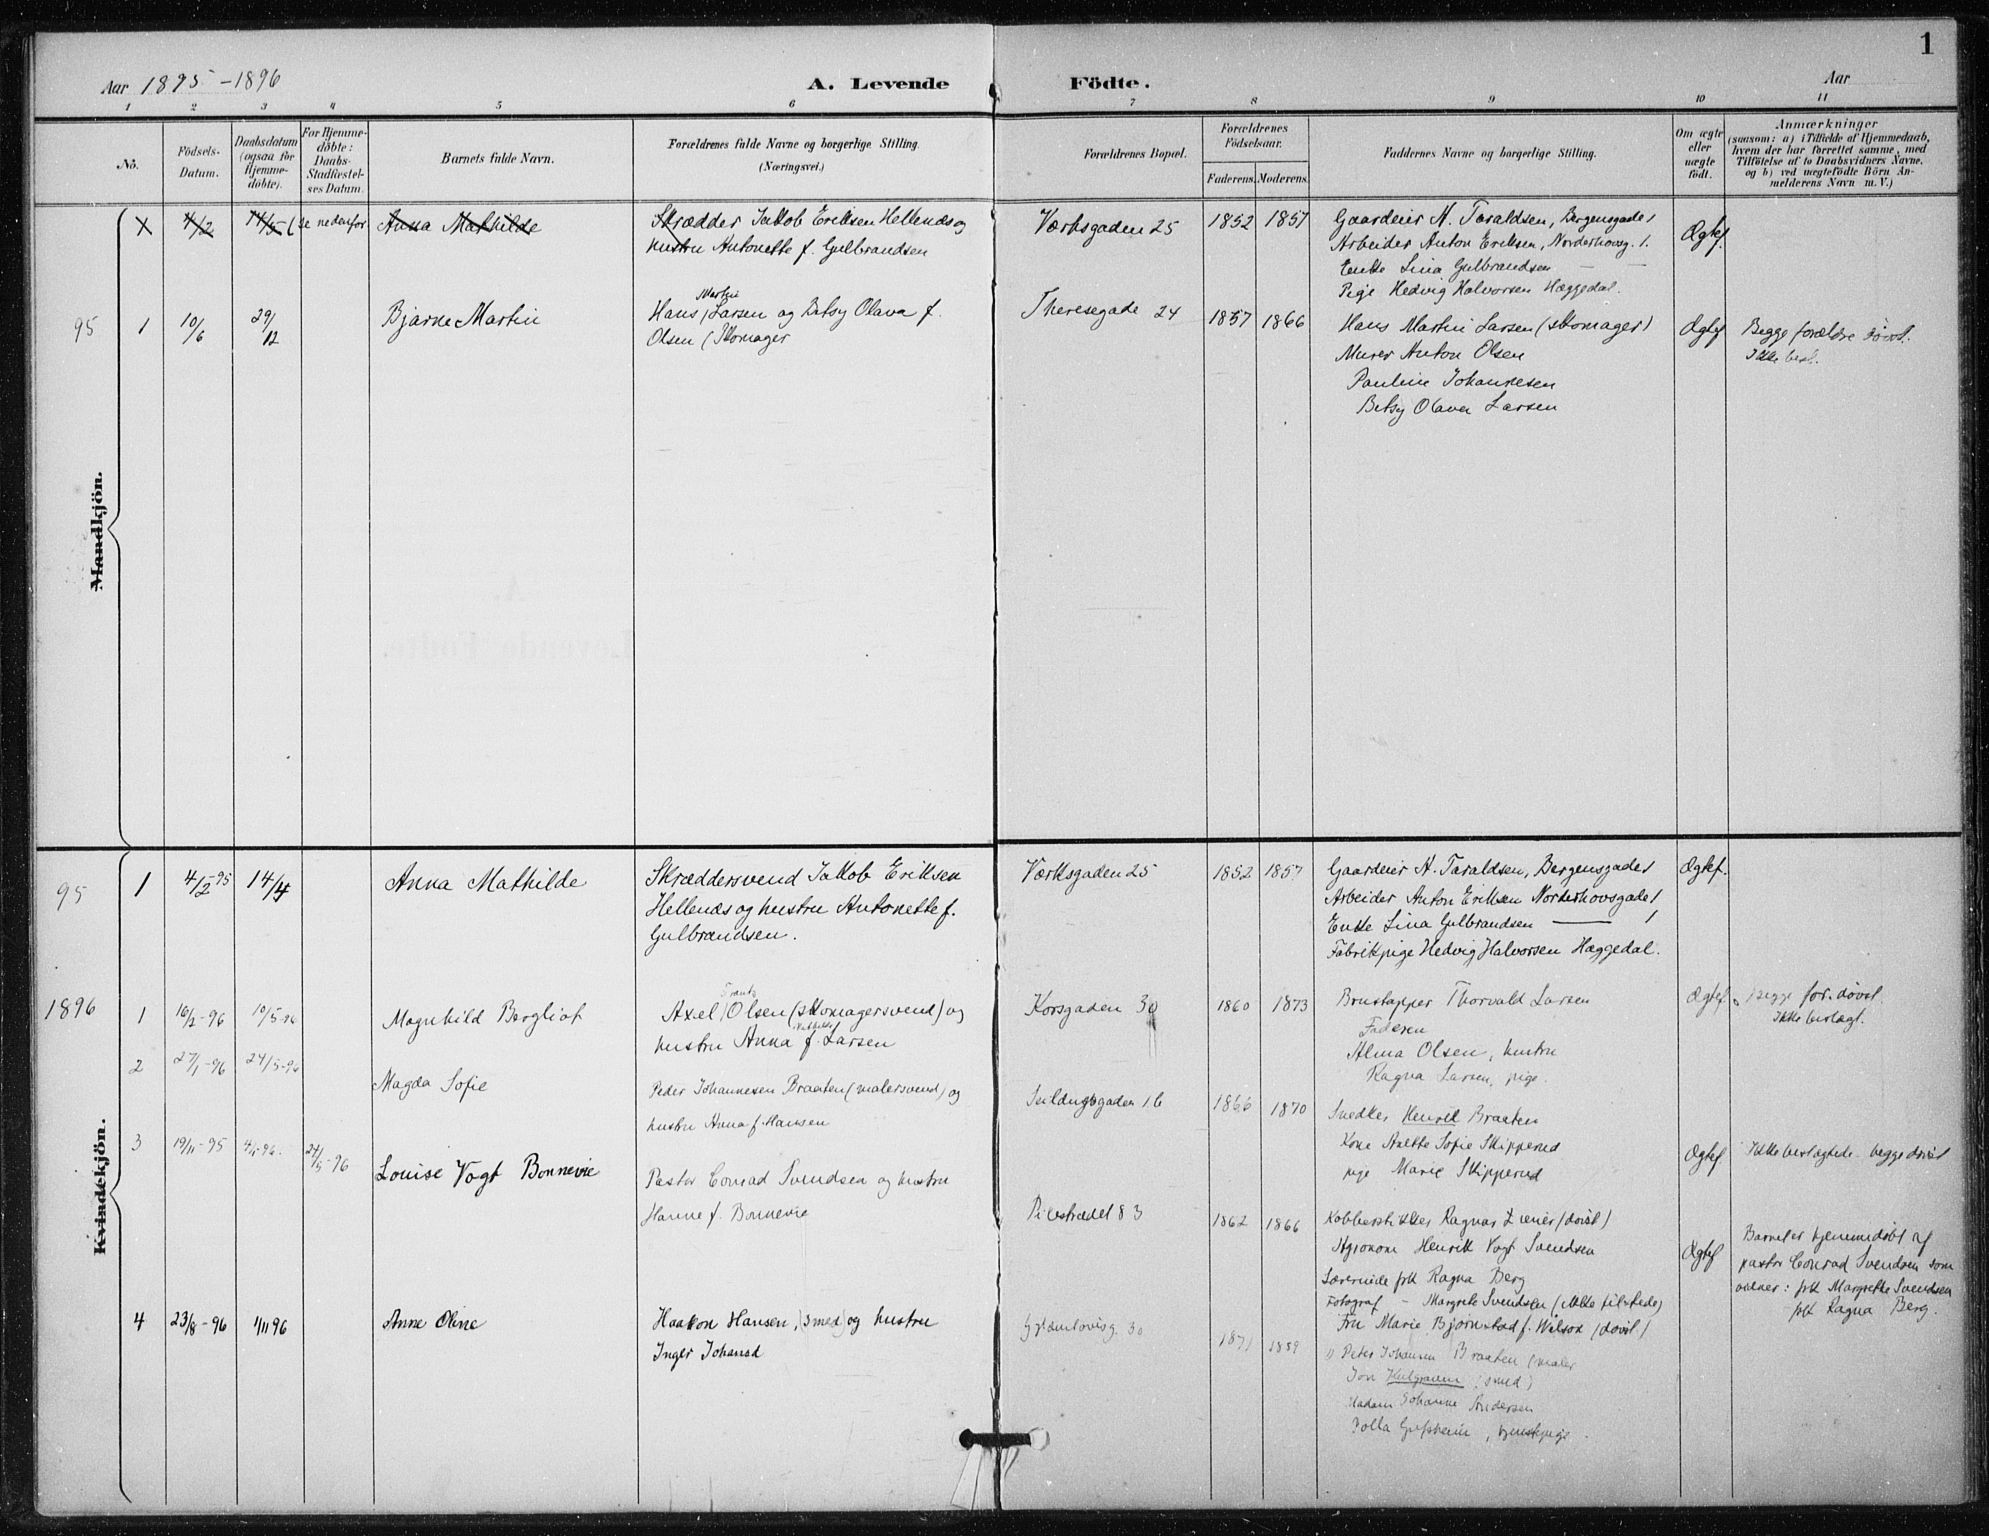 1
Aar 1895-1896 A. Levende Födte. Aar
1 2 3 4 5 6 7 8 9 10 11
No. Födsels-Datum. Daabsdatum (ogsaa for Hjemme-döbte). For Hjemme-döbte: Daabs-Stadfæstel-ses Datum. Barnets fulde Navn. Forældrenes fulde Navne og borgerlige Stilling. (Næringsvei.) Forældrenes Bopæl. Forældrenes Födselsaar. Faderens. Moderens. Faddernes Navne og borgerlige Stilling. Om ægte eller uægte født. Anmærkninger
(saasom: a) i Tilfælde af Hjemmedaab,
hvem der har forrettet samme, med
Tilföielse af to Daabsvidners Navne.
og b) ved uægtefödte Börn An-
melderens Navn m. V.)
Mandkjön.
4/2 14/5 (se nedenfor Anna Mathilde Skrædder Jakob Eriksen Hellenæs og Værksgaden 25 1852 1857 Gaardeier A. Taraldsen, Bergensgade 1 Ægtef.
hustru Antonette f. Gulbrandsen Arbeider Anton Eriksen, Norderhovsg. 1.
Enke Lina Gulbrandsen — —
Pige Hedvig Halvorsen Hæggedal.
95 1 10/6 29/12 Bjarne Martin Hans Martin Larsen og Betsy Olava f. Theresegade 24 1857 1866 Hans Martin Larsen (skomager) Ægtef Begge forældre døvst.
Olsen (Skomager Murer Anton Olsen Ikke besl.
Pauline Johannesen
Betsy Olava Larsen
Kvindekjön.
95 1 4/2 95 14/4 Anna Mathilde Skræddersvend Jakob Eriksen Værksgaden 25 1852 1857 Gaardeier A. Taraldsen, Bergensgade 1 Ægtef.
Hellenæs og hustru Antonette f. Arbeider Anton Eriksen Norderhovsgade 1
Gulbrandsen. Enke Lina Gulbrandsen — 1
Fabrikpige Hedvig Halvorsen Hæggedal.
1896 1 16/2-96 10/5-96 Magnhild Bergliot Axel Frantz Olsen (skomagersvend) og Korsgaden 30 1860 1873 Brustapper Thorvald Larsen Ægtef. Begge for. døvst.
hustru Anna f. Larsen Faderen Ikke beslægt.
Alma Olsen, hustru
Ragna Larsen, pige.
2 27/1-96 24/5-96 Magda Sofie Peder Johannesen Braaten (malersvend) og 16 1866 1870 Snedker Henrik Braaten
hustru Anna f. Hansen Kone Anette Sofie Skipperud
pige Marie Skipperud Ægtef Ikke beslægtede - begge døvst
3 19/11-95 4/1-96. 24/5-96 Louise Vogt Bonnevie Pastor Conrad Svendsen og hustru Pilestrædet 83 1862 1866 Kobberstikker Ragnar (døvst)
Hanne f. Bonnevie Agronom Henrik Vogt Svendsen Ægtef Barnet er hjemmedøbt af
Lærerinde frk Ragna Berg pastor Conrad Svendsen som
Fotograf - Margrete Svendsen (ikke tilstede) vidner: frk Margrethe Svendsen
Fru Marie Bjørnstad f. Wilson (døvst) frk Ragna Berg.
4 23/8-96 1/11 96 Anne Oline Haakon Hansen, (smed) og hustru 30 1871 1859 Peter Johansen Braaten (maler
Inger Johansd Jon (smed)
Madam Johanne Andersen